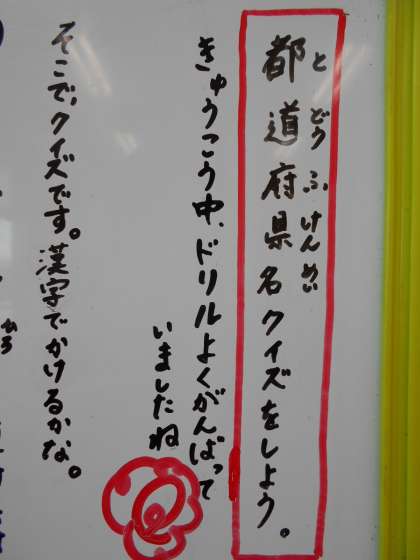 都道府県名クイズをしよう。
とどうふけんめい
きゅうこう中、ドリルよくがんばって
いましたね
そこで、クイズです。漢字でかけるかな。